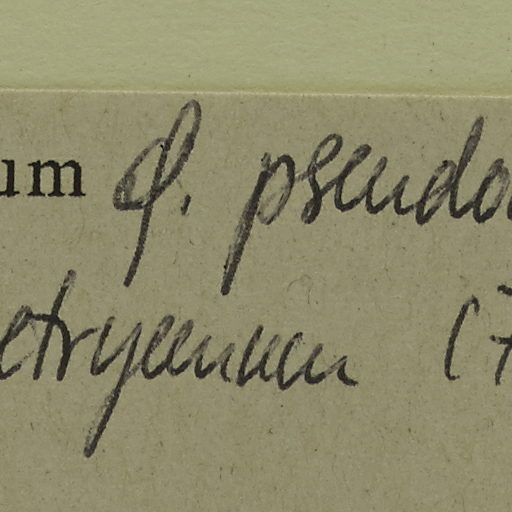 um φ. pseudo
otryanum (7